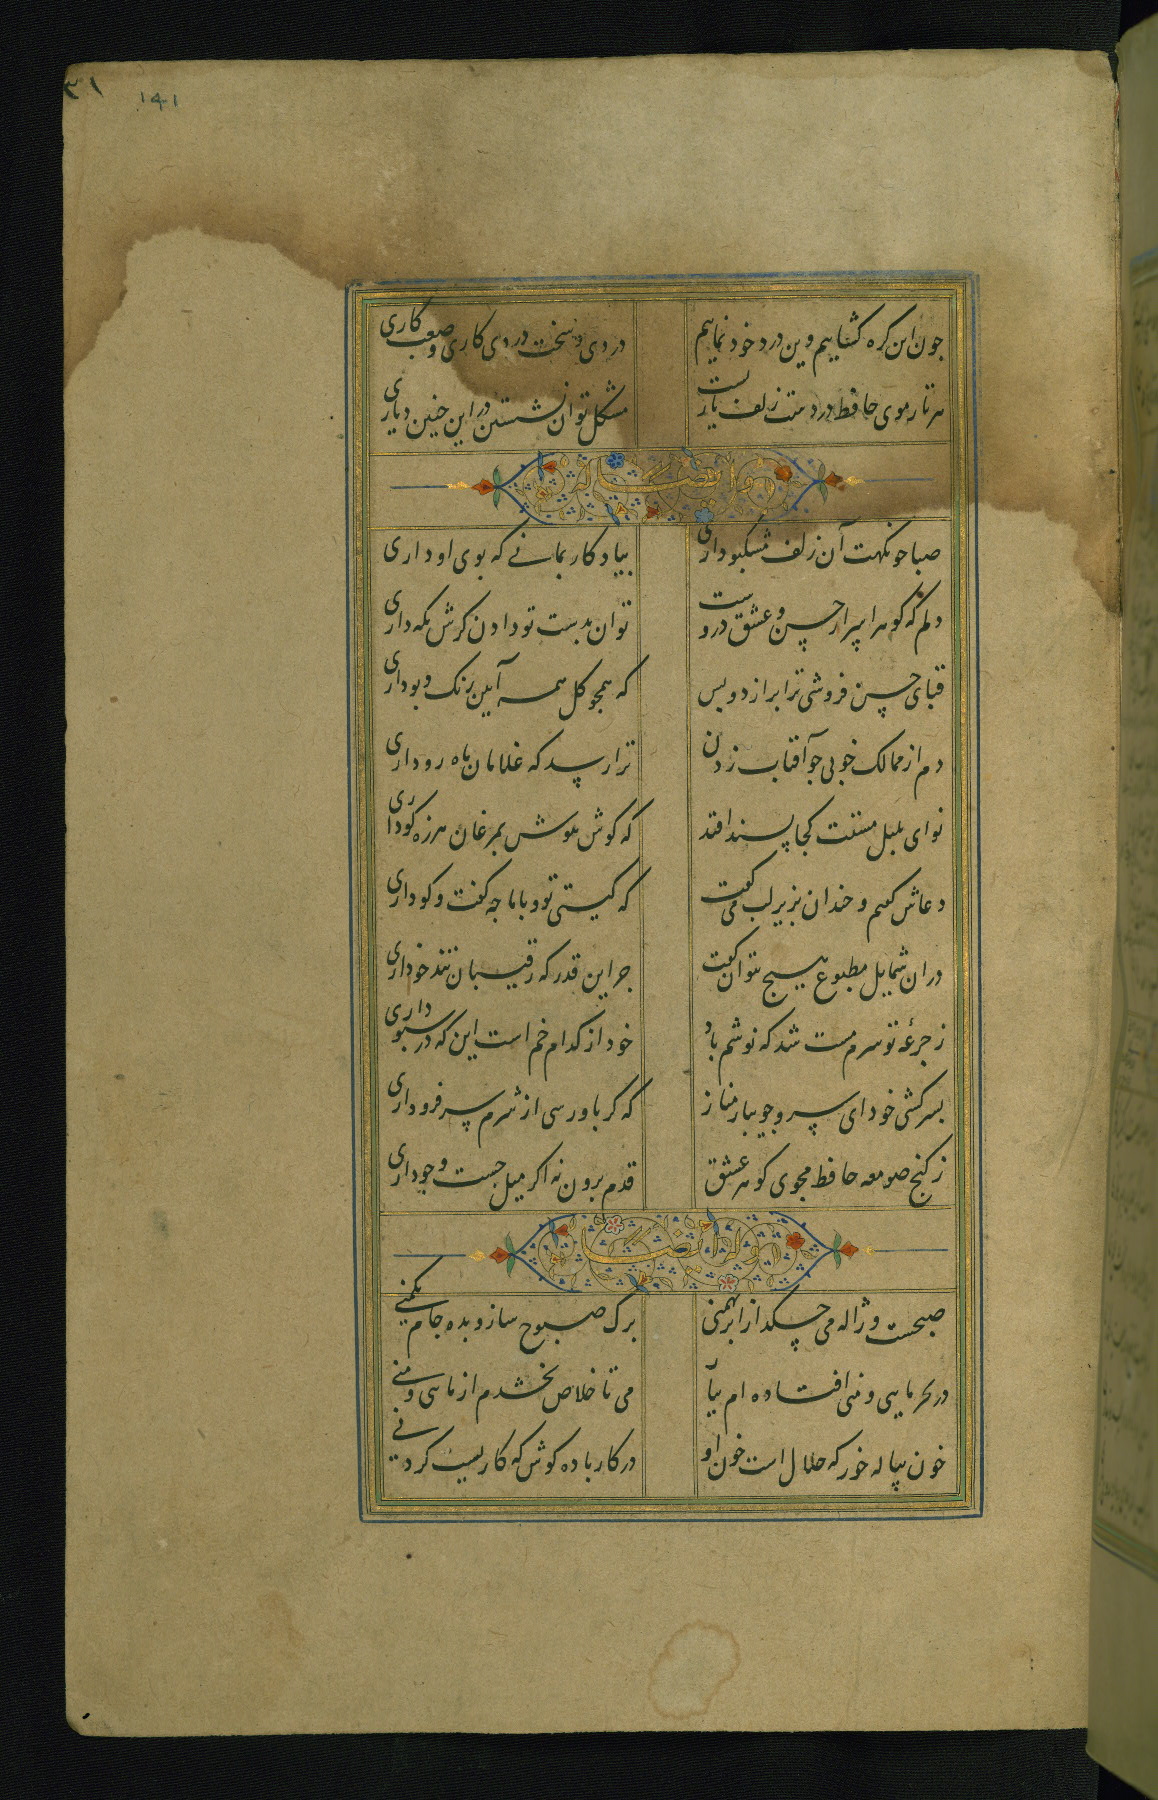 ۳۱ ۱۴۱
چون این گره گشاییم وین درد خود نماییم دردی و سخت دردی کاری و صعب کاری
هر تار موی حافظ در دست زلف یاریست مشکل توان نشستن در این چنین دیاری
وله ایضا
صبا جو نکهت آن زلف مشکبو داری بیادکار بمانی که بوی او داری
دلم که کوهر اسرار حسن و عشق دروست توان بدست تو دادن کرش نکه داری
قبای حسن فروشی ترا برازد و بس که همجو کل همه آیین رنک و بو داری
دم از ممالک خوبی جو آفتاب زدن ترا رسد که غلامان ماه رو داری
نوای بلبل مستت کجا پسند افتد که کوش هوش بمرغان هرزه کو داری
دعاش کفتم و خندان بزیر لب می کفت که کیستی تو و با ما جه کفت و کو داری
در ان شمایل مطبوع هیج نتوان کفت جز این قدر که رقیبان تند خو داری
ز جرعه تو سرم مست شد که نوشم باد خود از کدام خم است این که در سبو داری
بسرکشی خود ای سرو جویبار مناز که کر باو رسی از شرم سر فرو داری
ز کنج صومعه حافظ مجوی کوهر عشق قدم برون نه اکر میل جست و جو داری
وله ایضا
صبحست و ژاله می چکد از ابر بهمنی برک صبوح ساز و بده جام یکمنی
در بحر مایی و منی افتاده ام بیا می تا خلاص بخشدم از مایی و منی
خون پیاله خور که حلال است خون او در کار باده کوش که کاریست کردنی